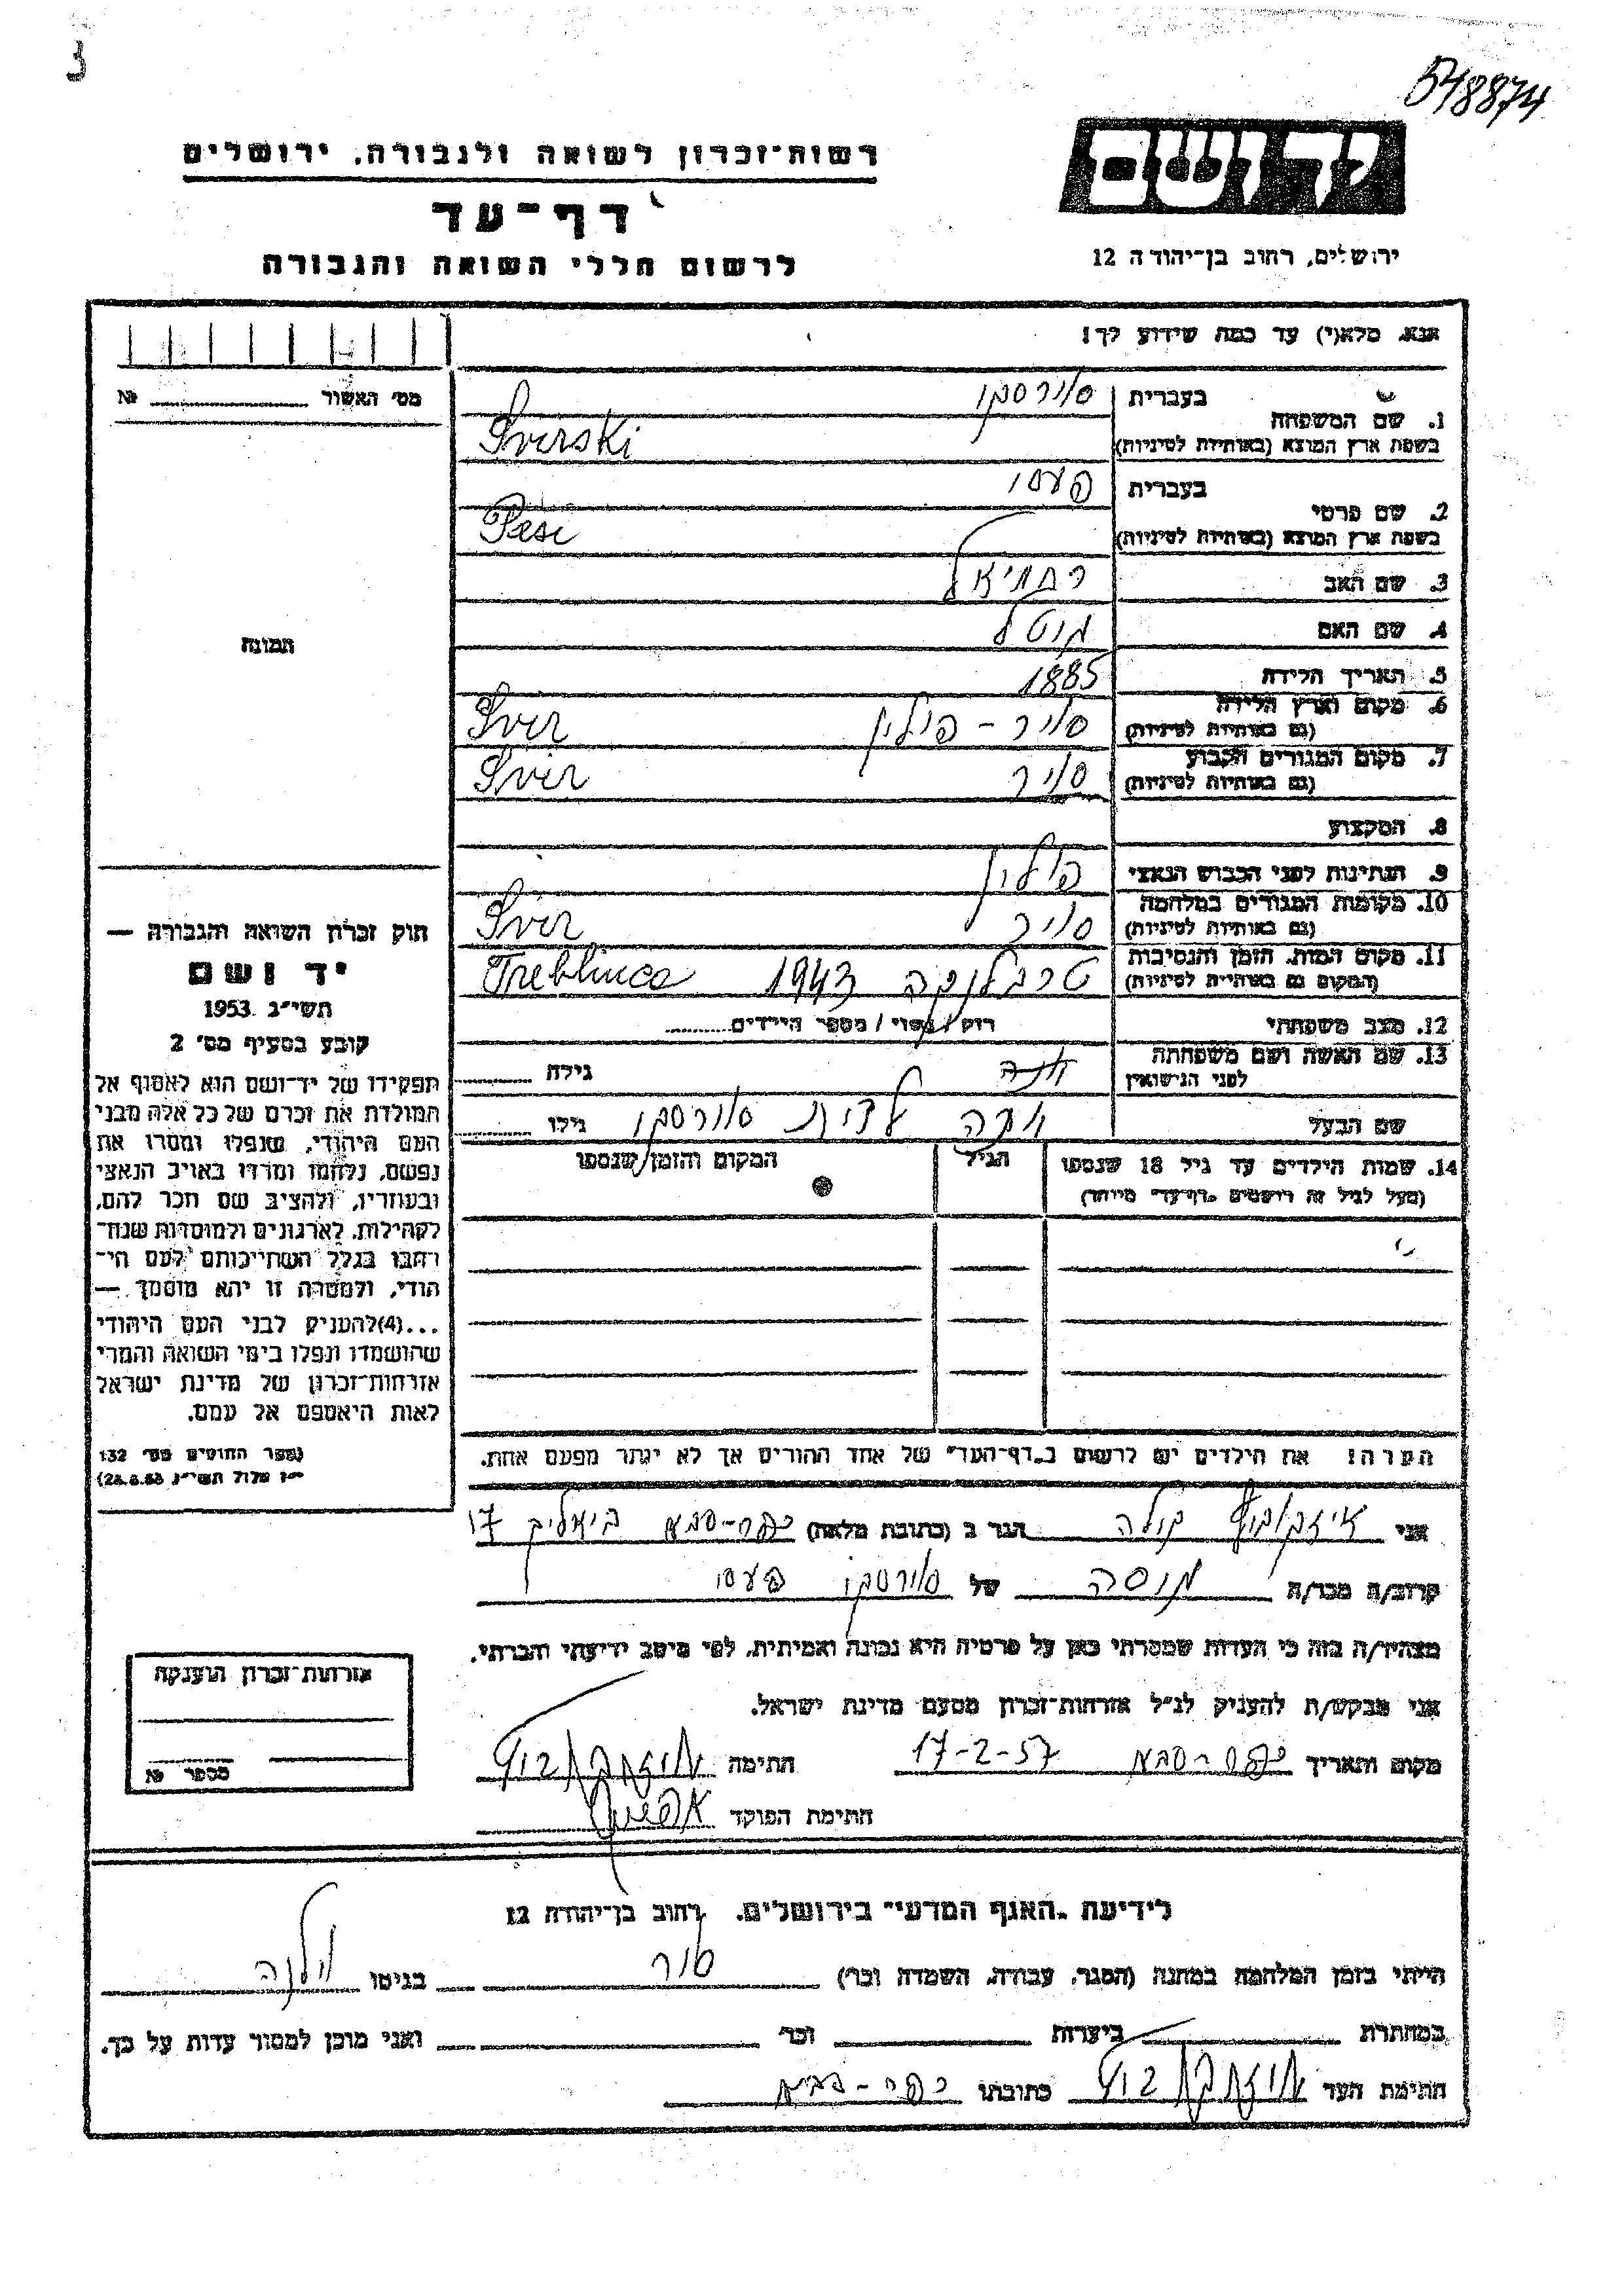 548874
יד ושם
רשות־זכרון לשואה ולגבורה, ירושלים
דף־עד
לרשום חללי השואה והגבורה
ירושלים, רחוב בן־יהודה 12
אנא, מלא(י) עד כמה שידוע לך!
מס׳ האשור №
1. שם המשפחה
בעברית סוירסקי
בשפת ארץ המוצא (באותיות לטיניות) Sverski
2. שם פרטי
בעברית פעסי
בשפת ארץ המוצא (באותיות לטיניות) Pesi
3. שם האב
4. שם האם
5. תאריך הלידה 1885
6. מקום וארץ הלידה
(גם באותיות לטיניות) סויר - פולין Sver
7. מקום המגורים הקבוע
(גם באותיות לטיניות) סויר Svir
8. המקצוע
9. הנתינות לפני הכבוש הנאצי פולין
10. מקומות המגורים במלחמה
(גם באותיות לטיניות) סויר Sver
11. מקום המות, הזמן והנסיבות
(המקום גם באותיות לטיניות) טרבלינקה 1943 Treblinca
12. מצב משפחתי רוק / נשוי / מספר הילדים
13. שם האשה ושם משפחתה
לפני הנישואין גילה
שם הבעל סוירסקי גילו
14. שמות הילדים עד גיל 18 שנספו הגיל המקום והזמן שנספו
(מעל לגיל זה רושמים „דף־עד״ מיוחד)
הערה! את הילדים יש לרשום ב„דף־העד״ של אחד ההורים אך לא יותר מפעם אחת.
תמונה
חוק זכרון השואה והגבורה —
יד ושם
תשי״ג 1953
קובע בסעיף מס׳ 2
תפקידו של יד־ושם הוא לאסוף אל
המולדת את זכרם של כל אלה מבני
העם היהודי, שנפלו ומסרו את
נפשם, נלחמו ומרדו באויב הנאצי
ובעוזריו, ולהציב שם וזכר להם,
לקהילות, לארגונים ולמוסדות שנח־
רבו בגלל השתייכותם לעם הי־
הודי, ולמטרה זו יהא מוסמך —
...(4)להעניק לבני העם היהודי
שהושמדו ונפלו בימי השואה והמרי
אזרחות־זכרון של מדינת ישראל
לאות היאספם אל עמם.
(ספר החוקים מס׳ 132
י״ז אלול תשי״ג 28.8.53)
אני הגר ב (כתובת מלאה) כפר-סבא ביאליק 17
קרוב/ה מכר/ה של סוירסקי פעסי
מצהיר/ה בזה כי העדות שמסרתי כאן על פרטיה היא נכונה ואמיתית, לפי מיטב ידיעתי והכרתי.
אני מבקש/ת להעניק לנ״ל אזרחות־זכרון מטעם מדינת ישראל.
מקום ותאריך כפר-סבא 17-2-57 חתימה
חתימת הפוקד
אזרחות־זכרון הוענקה
מספר №
לידיעת „האגף המדעי״ בירושלים, רחוב בן־יהודה 12
הייתי בזמן המלחמה במחנה (הסגר, עבודה, השמדה וכר׳) בגיטו וילנה
במחתרת ביערות וכר׳ ואני מוכן למסור עדות על כך.
חתימת העד כתובתו כפר-סבא